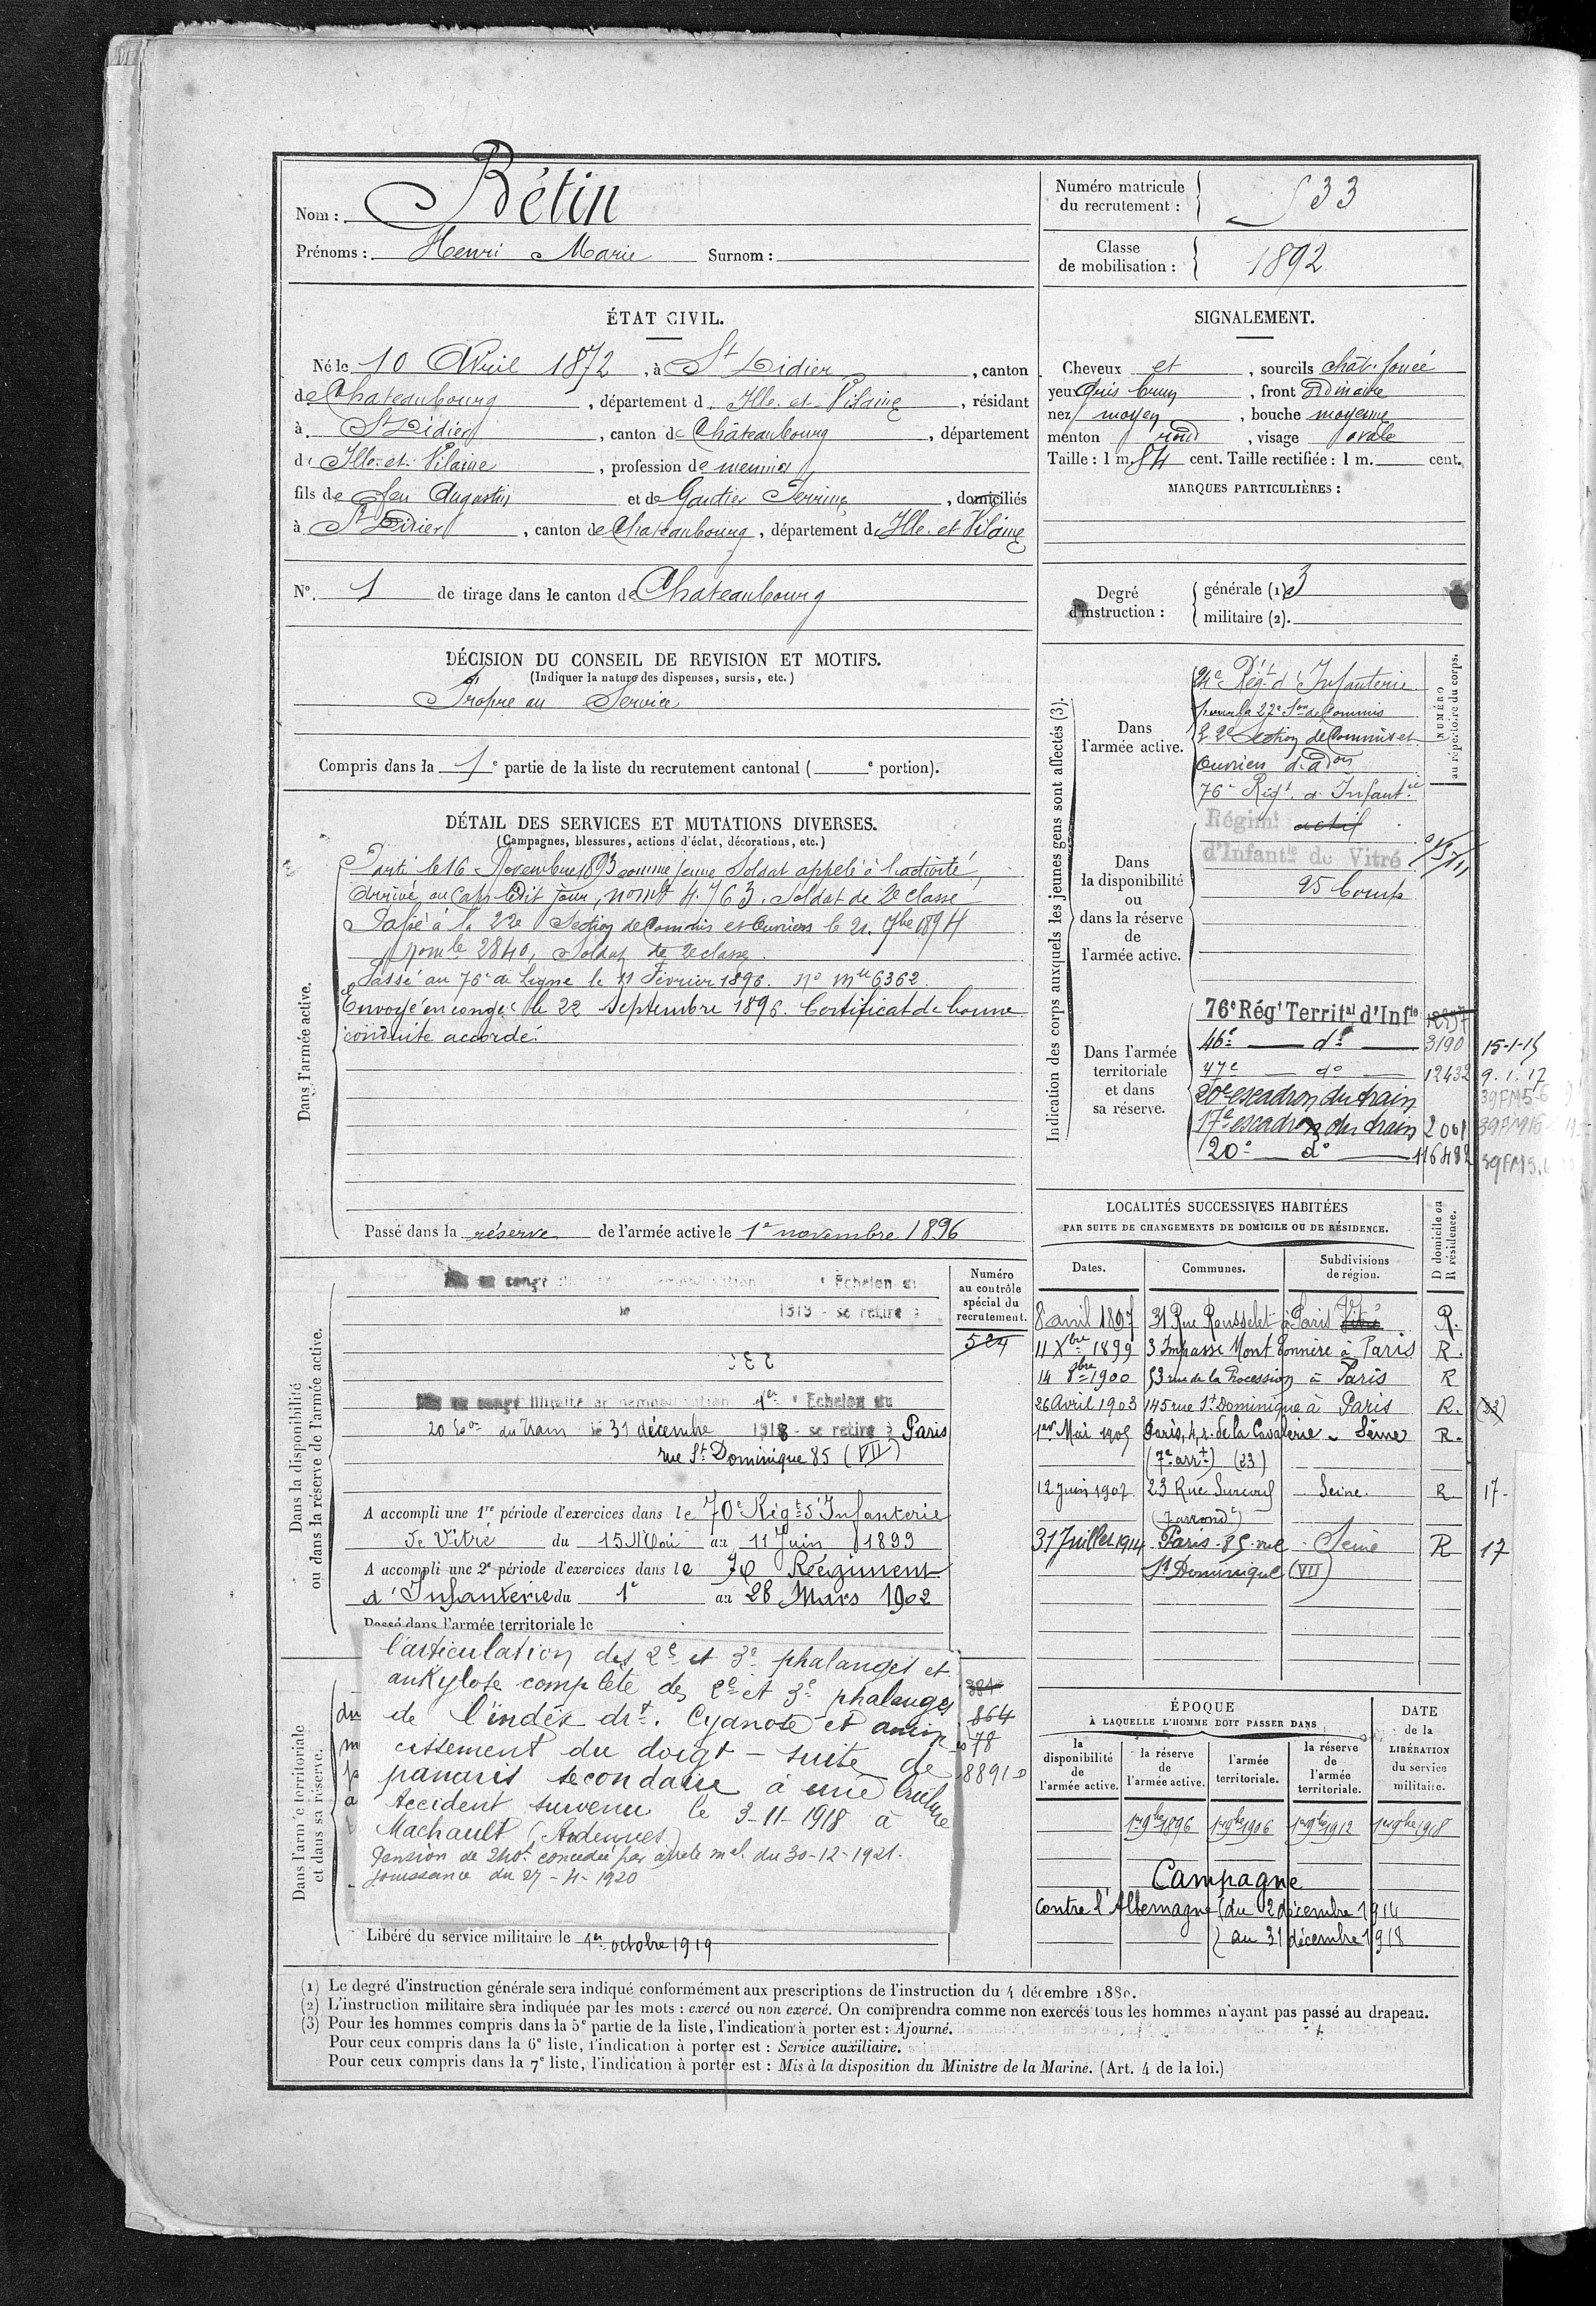 Nom : Bétin
Prénoms : Henri Marie Surnom :
Numéro matricule du recrutement : 533
Classe de mobilisation : 1892
ÉTAT CIVIL.
Né le 10 Avril 1872, à St Didier, canton
de Chateaubourg, département d Ille-et-Vilaine, résidant
à St Didier, canton de Châteaubourg, département
d Ille-et-Vilaine, profession de meunier
fils de feu Augustin et de Gautier Perrine, domiciliés
à St Didier, canton de Chateaubourg, département d Ille-et-Vilaine
N° 1 de tirage dans le canton de Chateaubourg
SIGNALEMENT.
Cheveux et, sourcils chat. foncé
yeux Gris brun, front Ordinaire
nez moyen, bouche moyenne
menton rond, visage ovale
Taille : 1 m. 54 cent. Taille rectifiée : 1 m. cent.
MARQUES PARTICULIÈRES :
Degré d'instruction : générale (1) 3
militaire (2).
DÉCISION DU CONSEIL DE REVISION ET MOTIFS.
(Indiquer la nature des dispenses, sursis, etc.)
Propre au Service
Compris dans la 1e partie de la liste du recrutement cantonal ( e portion).
DÉTAIL DES SERVICES ET MUTATIONS DIVERSES.
(Campagnes, blessures, actions d'éclat, décorations, etc.)
Dans l'armée active.
Parti le 16 Novembre 1893 comme jeune Soldat appelé à l'activité,
Arrivé au Corps ledit jour, no mle 4.763. Soldat de 2e classe
Passé à la 22e Section de Commis et Ouvriers le 21. 7bre 1894
no mle 2840, Soldat de 2e classe.
Passé au 76e de Ligne le 11 Février 1896. No mle 6362.
Envoyé en congé le 22 Septembre 1896. Certificat de bonne
conduite accordé.
Passé dans la réserve de l'armée active le 1er novembre 1896
Indication des corps auxquels les jeunes gens sont affectés (3).
NUMÉRO au répertoire du corps.
Dans l'armée active.
24e Régt d'Infanterie
pour la 22e Son de Commis
22e Section de Commis et
Ouvriers d'adon
76e Régt d'Infantie
Dans la disponibilité ou dans la réserve de l'armée active.
Régimt actif
d'Infantie de Vitré
Dans l'armée territoriale et dans sa réserve.
76e Régt Territal d'Infie
46e — do — 3190 15-1-15
47e — do — 12432 9.1.17
20e escadron du train
17e escadron du train 2001
20e — do — 116482
LOCALITÉS SUCCESSIVES HABITÉES
PAR SUITE DE CHANGEMENTS DE DOMICILE OU DE RÉSIDENCE.
Dates. Communes. Subdivisions de région. D domicile ou R résidence.
8 avril 1897 31 Rue Rousselet à Paris Vitré R.
11 Xbre 1899 3 Impasse Mont Tonnerre à Paris R.
14 8bre 1900 53 rue de la Procession à Paris R
26 Avril 1903 145 rue St Dominique à Paris R.
1er Mai 1905 Paris, 4, r. de la Cavalerie - Seine R.
(7e arrt) (23)
12 Juin 1907 23 Rue Surcouf Seine R 17
(7 arrondt)
31 Juillet 1914 Paris 85 rue Seine R 17
St Dominique (VII)
Dans la disponibilité ou dans la réserve de l'armée active.
Numéro au contrôle spécial du recrutement.
524
Mis en congé illimité de démobilisation 1er Echelon du
20 Eon du Train le 31 décembre 1918 - se retire à Paris
rue St Dominique 85 (VII)
A accompli une 1re période d'exercices dans le 70e Régt d'Infanterie
de Vitré du 15 Mai au 11 Juin 1899
A accompli une 2e période d'exercices dans le 70 Régiment
d'Infanterie du 1e au 28 Mars 1902
Passé dans l'armée territoriale le
Dans l'armée territoriale et dans sa réserve.
l'articulation des 2e et 3e phalanges et
ankylose complète des 2e et 3e phalanges
de l'index drt. Cyanose et amin
cissement du doigt - suite de
panaris secondaire à une brûlure
Accident survenu le 3-11-1918 à
Machault (Ardennes)
Pension de 240f concédée par arrêté mel du 30-12-1921.
Jouissance du 27-4-1920
864
78
Libéré du service militaire le 1er octobre 1919
ÉPOQUE À LAQUELLE L'HOMME DOIT PASSER DANS
la disponibilité de l'armée active. la réserve de l'armée active. l'armée territoriale. la réserve de l'armée territoriale.
DATE de la LIBÉRATION du service militaire.
1er 9bre 1896 1er 9bre 1906 1er 9bre 1912 1er 9bre 1918
Campagne
contre l'Allemagne (du 2 décembre 1914
au 31 décembre 1918
(1) Le degré d'instruction générale sera indiqué conformément aux prescriptions de l'instruction du 4 décembre 1889.
(2) L'instruction militaire sera indiquée par les mots : exercé ou non exercé. On comprendra comme non exercés tous les hommes n'ayant pas passé au drapeau.
(3) Pour les hommes compris dans la 5e partie de la liste, l'indication à porter est : Ajourné.
Pour ceux compris dans la 6e liste, l'indication à porter est : Service auxiliaire.
Pour ceux compris dans la 7e liste, l'indication à porter est : Mis à la disposition du Ministre de la Marine. (Art. 4 de la loi.)